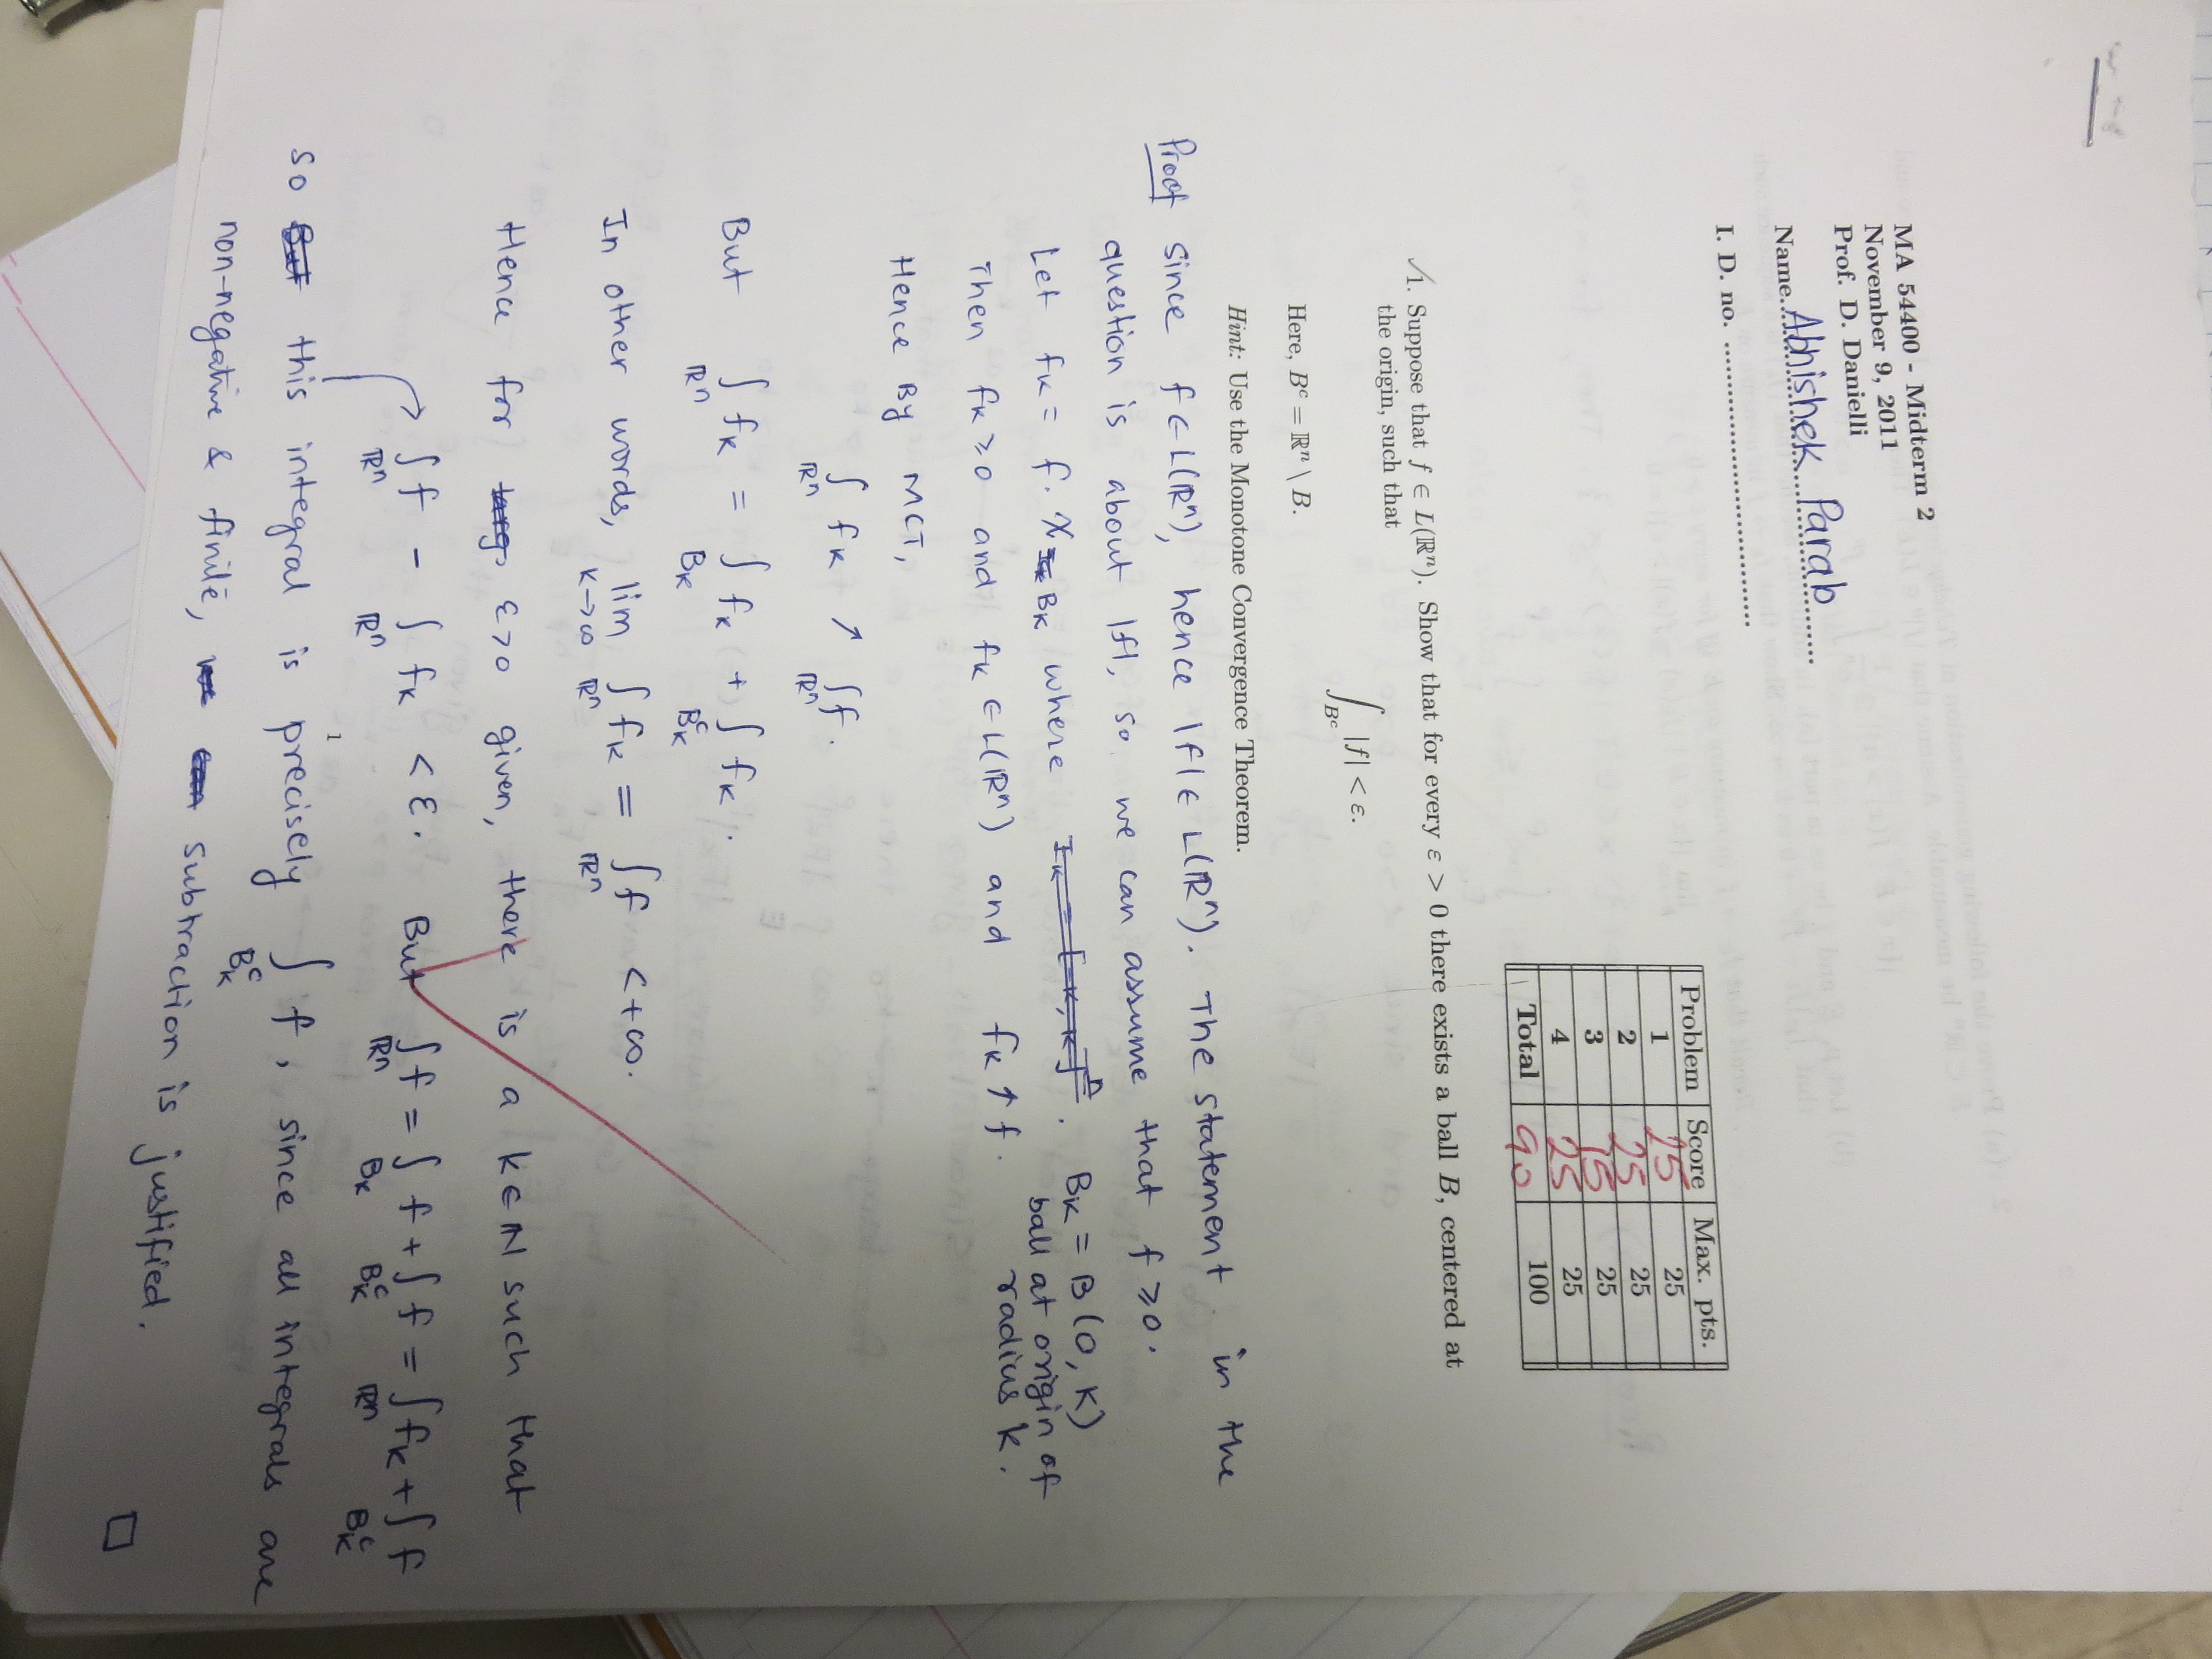 MA 54400 - Midterm 2
November 9, 2011
Prof. D. Danielli
Name Abhishek Parab
I. D. no.
Problem Score Max. pts.
1 25 25
2 25 25
3 15 25
4 25 25
Total 90 100
1. Suppose that f ∈ L(ℝⁿ). Show that for every ε > 0 there exists a ball B, centered at
the origin, such that
∫_{Bᶜ} |f| < ε.
Here, Bᶜ = ℝⁿ \ B.
Hint: Use the Monotone Convergence Theorem.
Proof Since f ∈ L(ℝⁿ), hence |f| ∈ L(ℝⁿ). The statement in the
question is about |f|, so we can assume that f ≥ 0.
Let f_k = f · χ_{B_k} where B_k = B(0, k)
ball at origin of
radius k.
Then f_k ≥ 0 and f_k ∈ L(ℝⁿ) and f_k ↑ f.
Hence By MCT,
∫_{ℝⁿ} f_k ↗ ∫_{ℝⁿ} f.
But ∫_{ℝⁿ} f_k = ∫_{B_k} f_k + ∫_{B_kᶜ} f_k.
In other words, lim_{k→∞} ∫_{ℝⁿ} f_k = ∫_{ℝⁿ} f < +∞.
Hence for ε>0 given, there is a k∈ℕ such that
∫_{ℝⁿ} f - ∫_{ℝⁿ} f_k < ε. But ∫_{ℝⁿ} f = ∫_{B_k} f + ∫_{B_kᶜ} f = ∫_{ℝⁿ} f_k + ∫_{B_kᶜ} f
1
So this integral is precisely ∫_{B_kᶜ} f, since all integrals are
non-negative & finite, subtraction is justified.